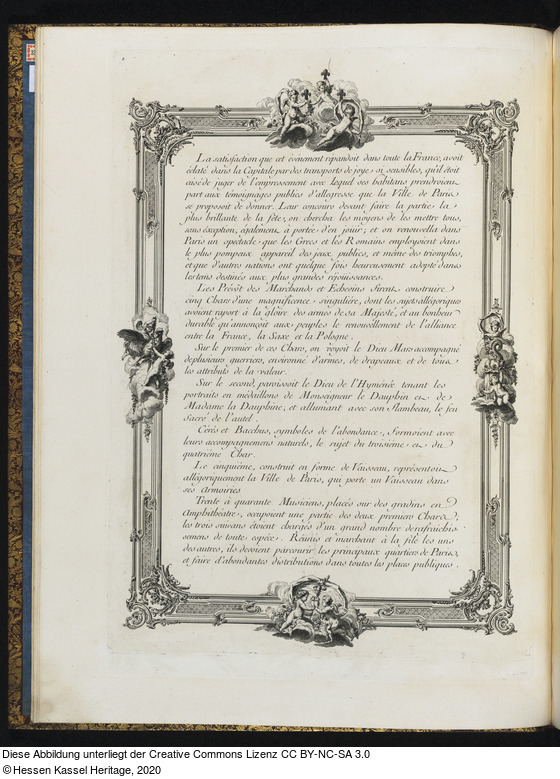 La satisfaction que cet événement répandoit dans toute la France, avoit
éclaté dans la Capitale par des transports de joye si sensibles, qu'il étoit
aisé de juger de l'empressement avec lequel ses habitans prendroient
part aux témoignages publics d'allegresse que la Ville de Paris
se proposoit de donner. Leur concours devant faire la partie la
plus brillante de la fête, on chercha les moyens de les mettre tous,
sans exception, également à portée d'en jouir; et on renouvella dans
Paris un spectacle que les Grecs et les Romains employoient dans
le plus pompeux appareil des jeux publics, et même des triomphes,
et que d'autres nations ont quelque fois heureusement adopté dans
les tems destinés aux plus grandes réjouissances.
Les Prévôt des Marchands et Echevins firent construire
cinq Chars d'une magnificence singulière, dont les sujets allégoriques
avoient raport à la gloire des armes de sa Majesté, et au bonheur
durable qu'annonçoit aux peuples le renouvellement de l'alliance
entre la France, la Saxe et la Pologne.
Sur le premier de ces Chars, on voyoit le Dieu Mars accompagné
de plusieurs guerriers, environné d'armes, de drapeaux et de tous
les attributs de la valeur.
Sur le second paroissoit le Dieu de l'Hyménée tenant les
portraits en médaillons de Monseigneur le Dauphin et de
Madame la Dauphine, et allumant avec son flambeau, le feu
Sacré de l'autel.
Cérès et Bacchus, symboles de l'abondance, formoient avec
leurs accompagnemens naturels, le sujet du troisième et du
quatrième Char.
Le cinquième, construit en forme de Vaisseau, représentoit
allégoriquement la Ville de Paris, qui porte un Vaisseau dans
ses Armoiries
Trente à quarante Musiciens, placés sur des gradins en
Amphithéatre, occupoient une partie des deux premiers Chars,
les trois suivans étoient chargés d'un grand nombre de rafraichis
semens de toute espèce. Réunis et marchant à la file les uns
des autres, ils devoient parcourir les principaux quartiers de Paris,
et faire d'abondantes distributions dans toutes les places publiques.
Diese Abbildung unterliegt der Creative Commons Lizenz CC BY-NC-SA 3.0
©Hessen Kassel Heritage, 2020